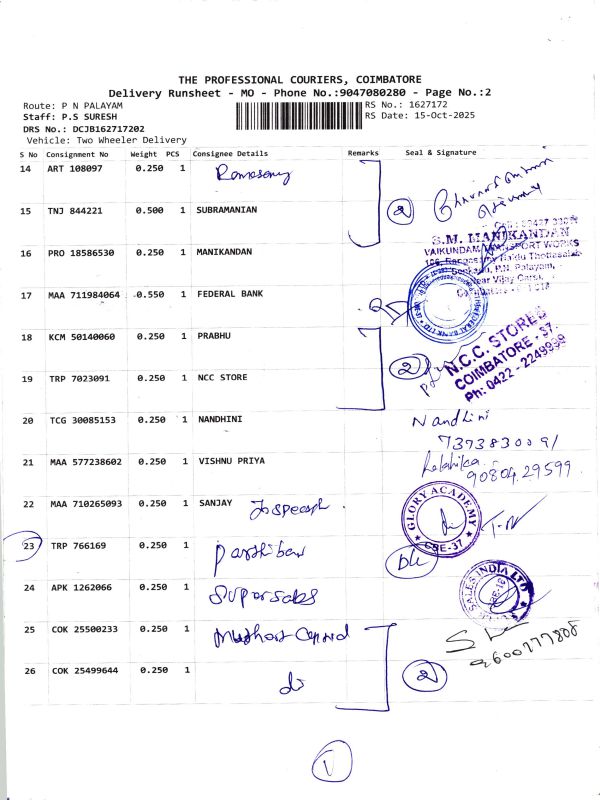 THE PROFESSIONAL COURIERS, COIMBATORE
Delivery Runsheet - MO - Phone No.:9047080280 - Page No.:2
Route: P N PALAYAM
RS No.: 1627172
Staff: P.S SURESH
RS Date: 15-Oct-2025
DRS No.: DCJB162717202
Vehicle: Two Wheeler Delivery
S No Consignment No Weight PCS Consignee Details Remarks Seal & Signature
14 ART 108097 0.250 1
15 TNJ 844221 0.500 1 SUBRAMANIAN 2
S.M. MANIKANDAN
VAIKUNDAM TRANSPORT WORKS
16 PRO 18586530 0.250 1 MANIKANDAN
17 MAA 711984064 0.550 1 FEDERAL BANK
18 KCM 50140060 0.250 1 PRABHU
N.C.C. STORES
COIMBATORE - 37.
Ph: 0422 - 2249999
19 TRP 7023091 0.250 1 NCC STORE 2
20 TCG 30085153 0.250 1 NANDHINI Nandhini
7373830091
21 MAA 577238602 0.250 1 VISHNU PRIYA
90804 29599
22 MAA 710265093 0.250 1 SANJAY
GLORY ACADEMY
CBE-37
23 TRP 766169 0.250 1 Parthiban
24 APK 1262066 0.250 1 Supersales
SALES INDIA LTD
25 COK 25500233 0.250 1
9600777808
26 COK 25499644 0.250 1 do 2
1